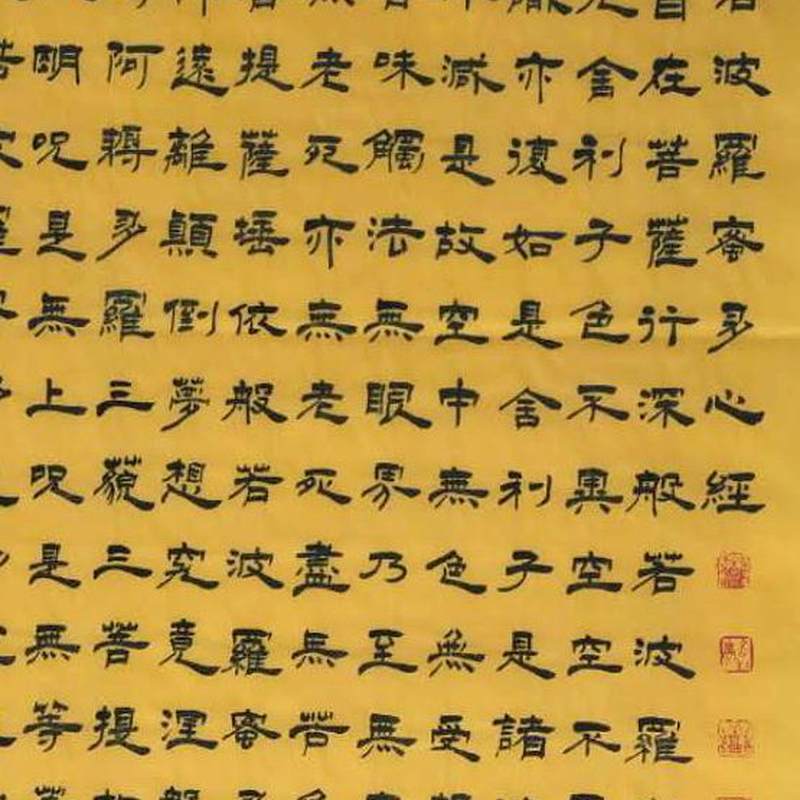 波羅蜜多心經
自在菩薩行深般若波羅
舍利子色不異空空不
亦復如是舍利子是諸
減是故空中無色無受
味觸法無眼界乃至無
老死亦無老死盡無苦
提薩埵依般若波羅蜜
遠離顛倒夢想究竟涅
阿耨多羅三藐三菩提
明呪是無上呪是無等